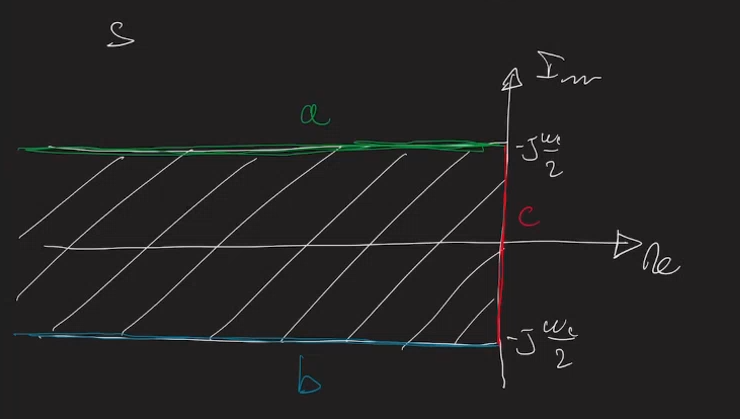 S
Im
a
-j ωc/2
c
Re
-j ωc/2
b